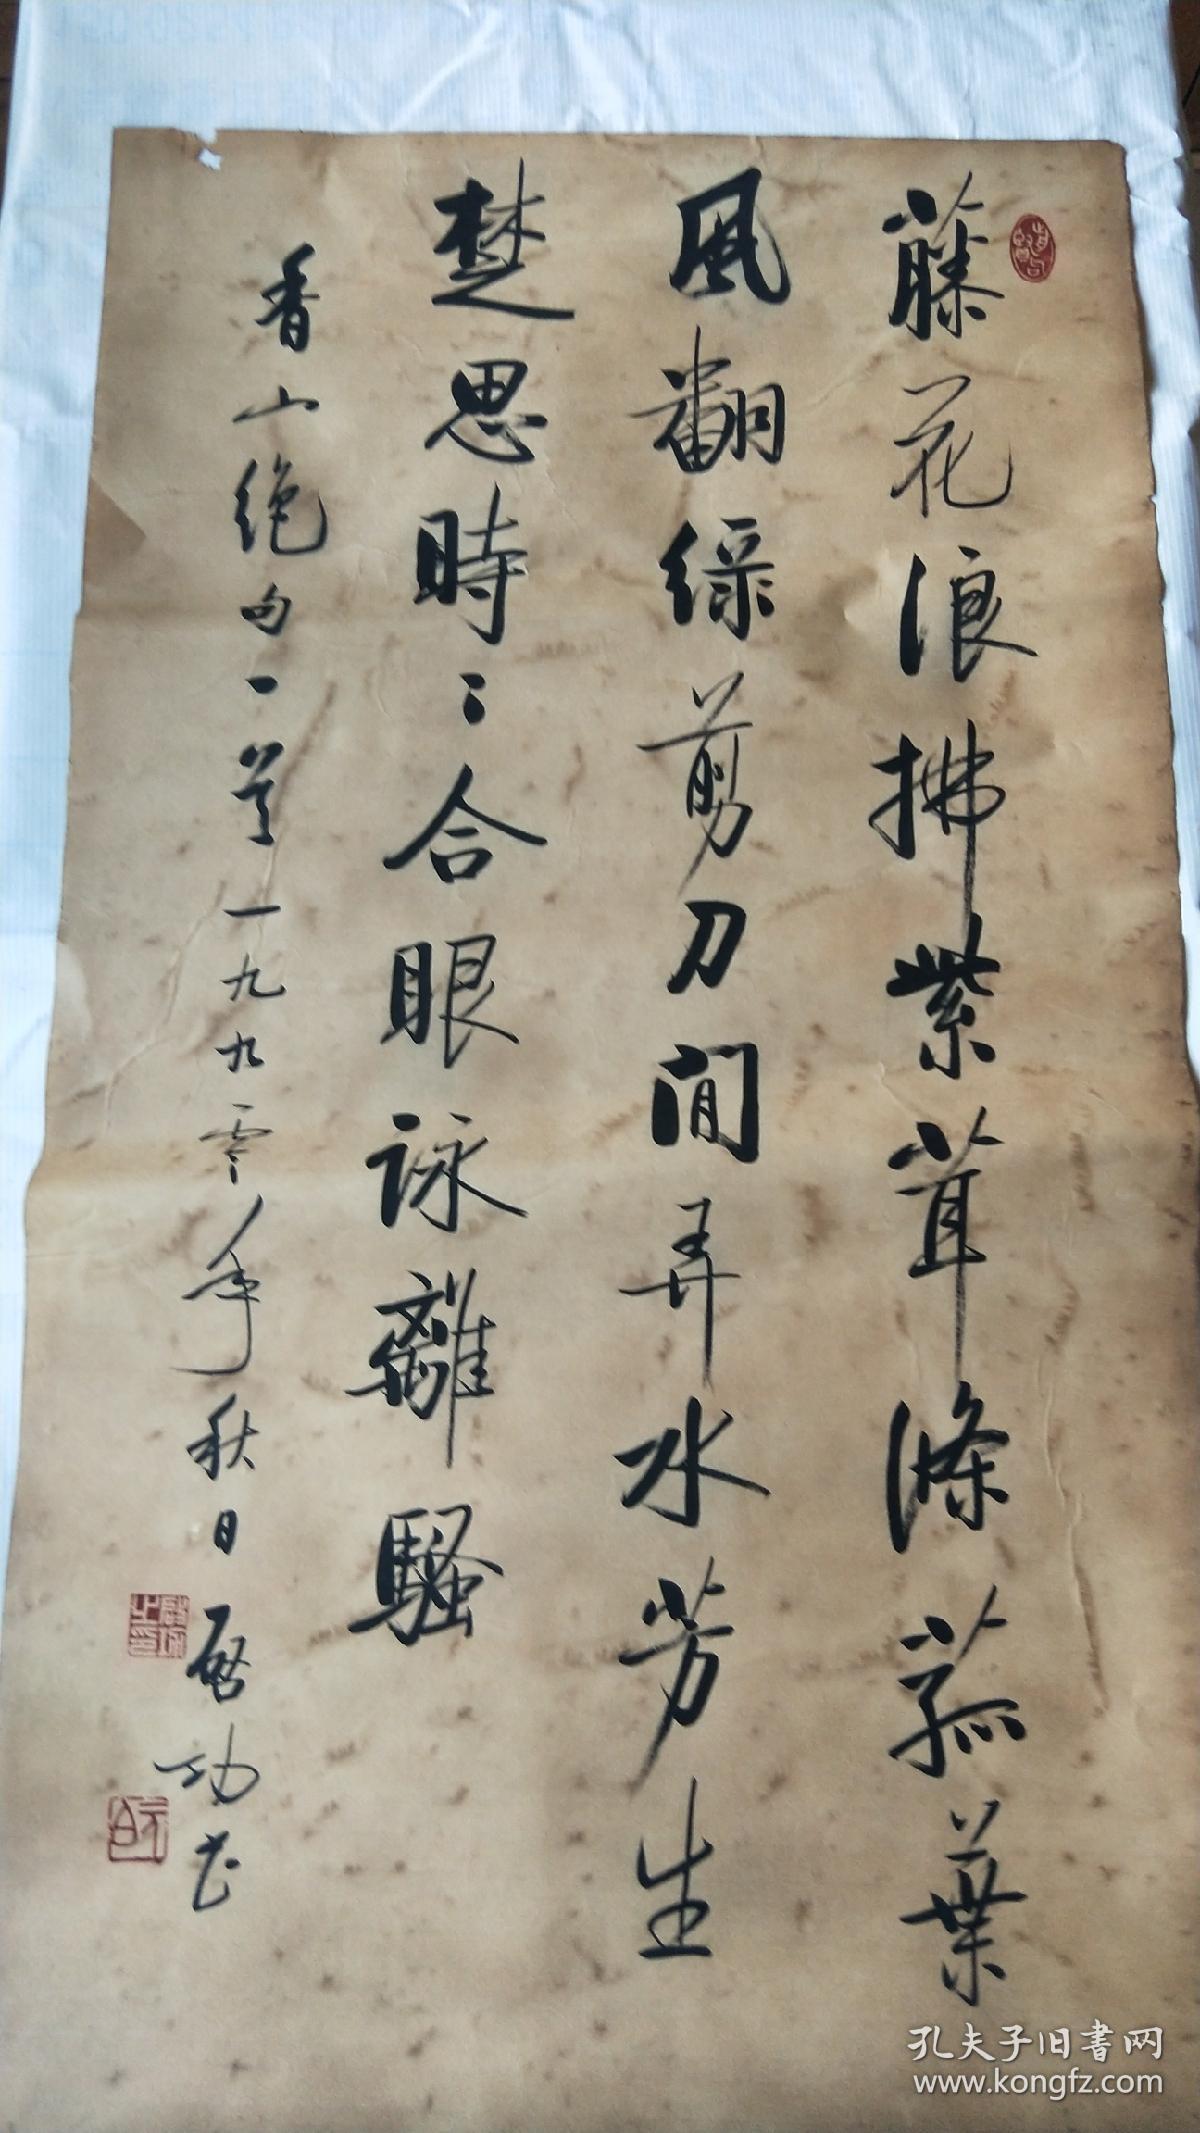 藤花浪拂紫茸條菰葉
風翻綠剪刀閒弄水芳生
楚思時〻合眼詠離騷
香山絶句一首一九九零年秋日啟功書
啟功之印
元白
孔夫子旧书网
www.kongfz.com